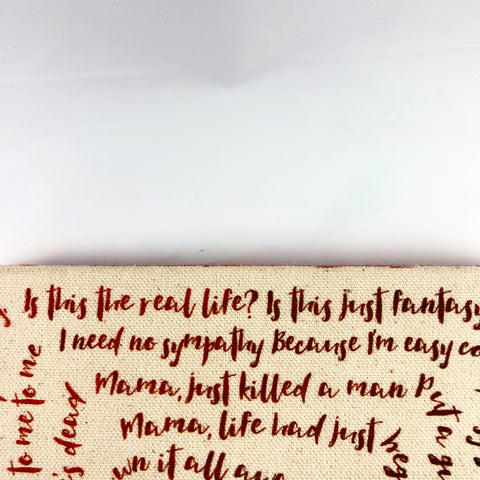 Is this the real life? Is this just fantasy
I need no sympathy Because I'm easy co
Mama, just killed a man Put a gu
Mama, life had just beg
wn it all awa
to me to me
is dead